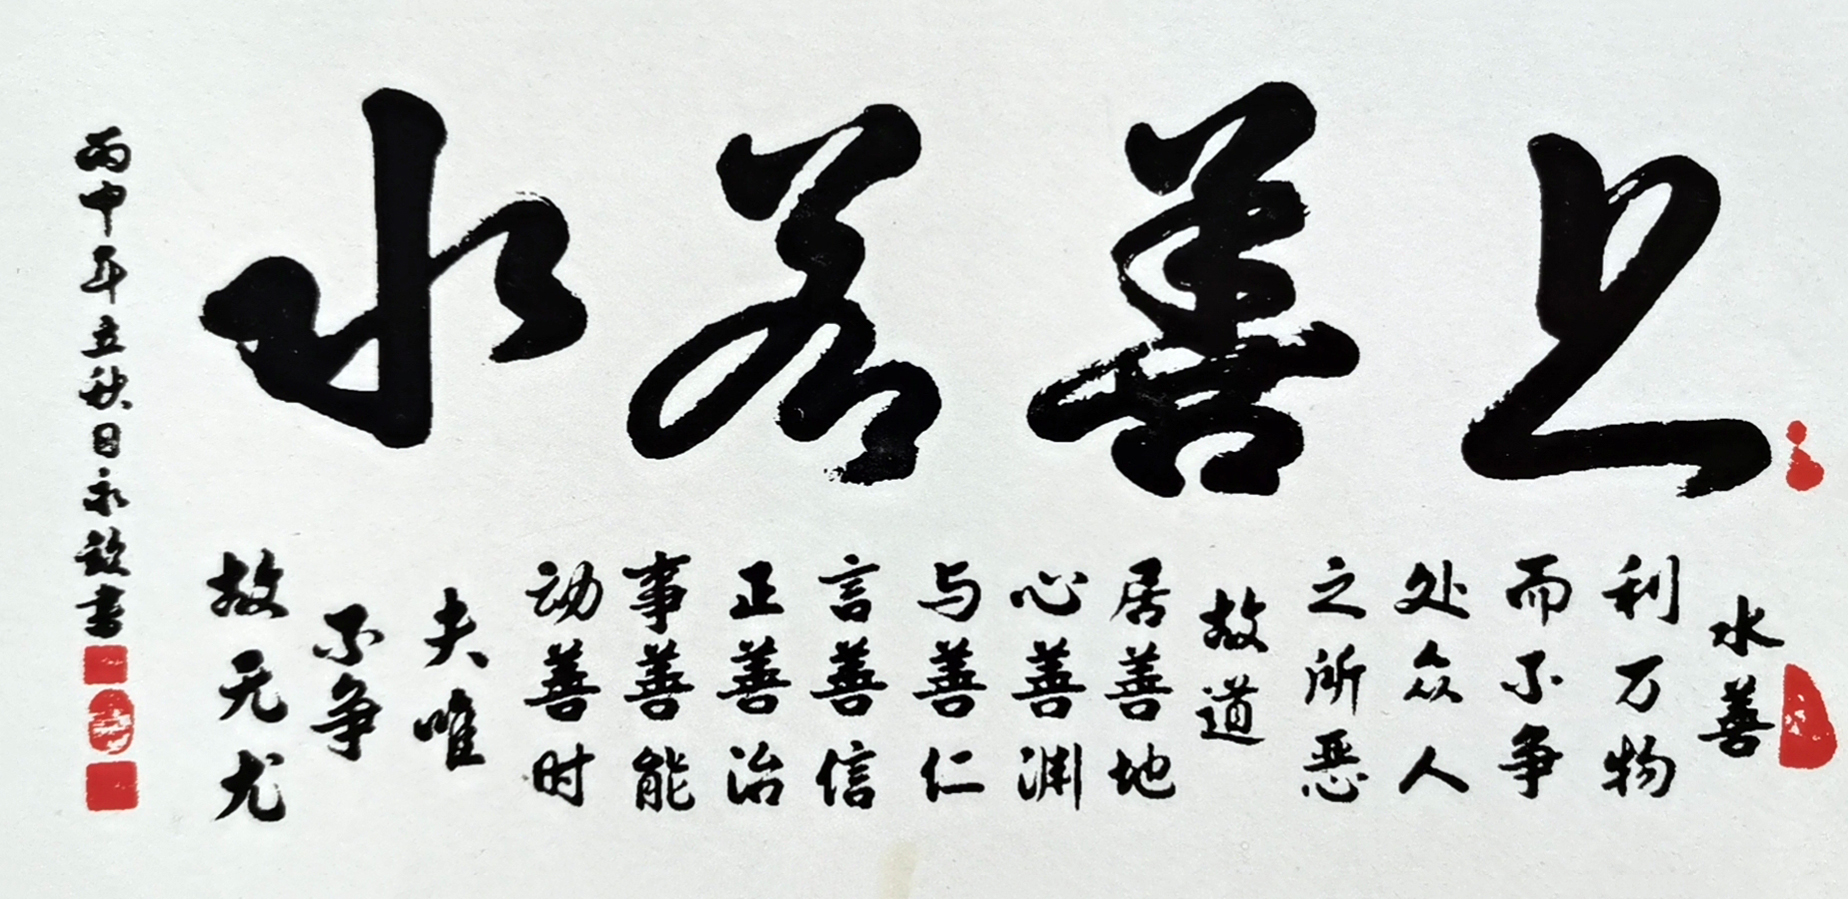 上善若水
水善
利万物
而不争
处众人
之所恶
故道
居善地
心善渊
与善仁
言善信
正善治
事善能
动善时
夫唯
不争
故无尤
丙申年立秋日永欽书